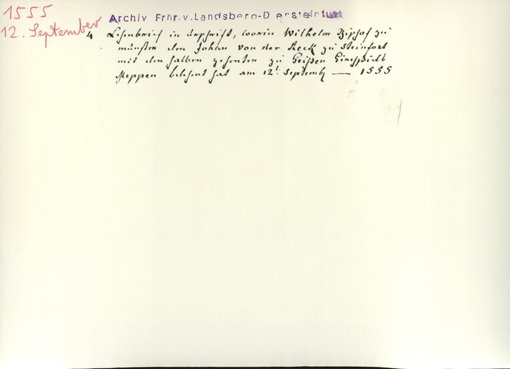 1555
12. September
Archiv Frhr.v.Landsberg-D ensteinfurt
4 Lehnbrief in Urschrift, worin Wilhelm Bischof zu
münster den Johan von der Reck zu Steinfort
mit den halben zehenten zu Geissen Kirchspiels
Meppen belehnt hat am 12t Septemb — 1555